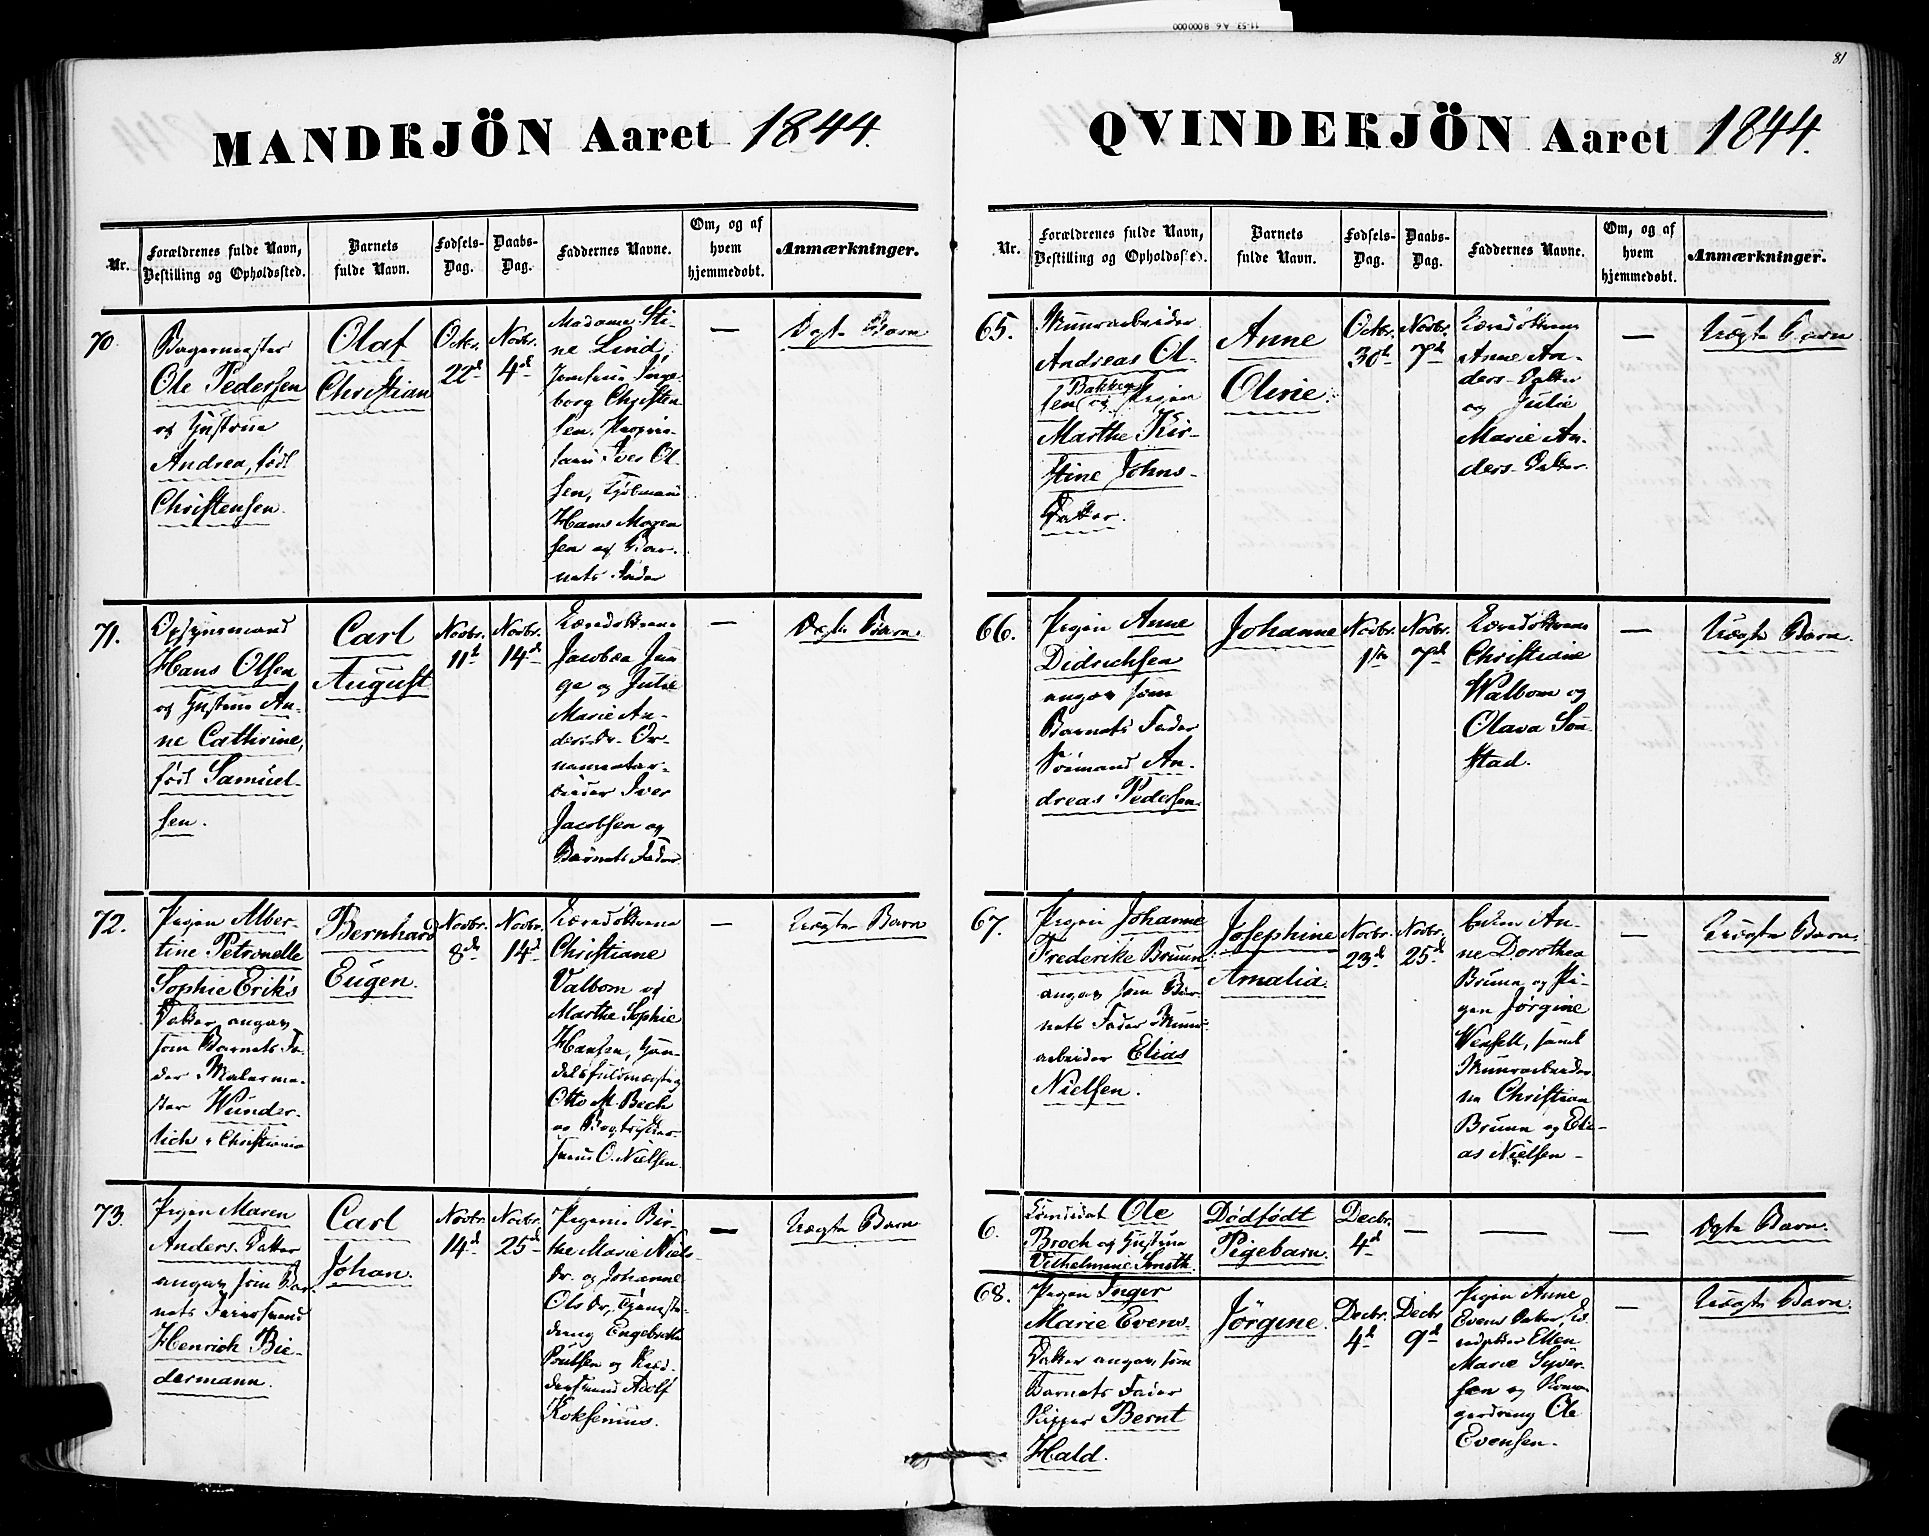 81
MANDKJÖN Aaret 1844.
Nr.
Forældrenes fulde Navn,
Bestilling og Opholdssted.
Barnets
fulde Navn.
Fødsels-
Dag.
Daabs-
Dag.
Faddernes Navne.
Om, og af
hvem
hjemmedøbt.
Anmærkninger.
70.
Bagermester
Ole Pedersen
og Hustrue
Andrea, født
Christensen.
Olaf
Christian
Octbr.
22d
Novbr.
4d
Madame Sti-
ne Lind,
Jomfrue Inge-
borg Christen-
sen.
Iver Ol-
sen, Kjøbmand
Hans Mogen
sen og Bar-
nets Fader
—
Ægte Barn
71.
Opsynsmand
Hans Olsen
og Hustrue An-
ne Cathrine,
født Samuel-
sen.
Carl
August
Novbr.
11t
Novbr.
14d
Jacobea Jun-
ge og Julie
Marie An-
dersdr. Or-
namentar-
beider Iver
Jacobsen og
Barnets Fader
—
Ægte Barn.
72.
Pigen Alber-
tine Petronelle
Sophie Eriks
Datter angav
som Barnets Fa-
der Malerme-
ster Wunder-
lich i Christiania
Bernhard
Eugen.
Novbr.
8de
Novbr.
14d
Christiane
Valbom og
Marthe Sophie
Hansen, Han-
delsfuldmægtig
Otto M. Bech
og Bogtrykker-
svend O. Nielsen.
—
Uægte Barn
73.
Pigen Maren
Anders Datter
angav som Bar-
nets Fader Svend
Henrich Bie-
dermann.
Carl
Johan.
Novbr.
14d
Novbr.
25d
Pigerne Bir-
the Marie Niels-
dr. og Johanne
Olsdr., Tjeneste-
dreng Engebreth
Poulsen og Skræd-
dersvend Adolf
Koksenius.
—
Uægte Barn
QVINDEKJÖN Aaret 1844.
Nr.
Forældrenes fulde Navn,
Bestilling og Opholdssted.
Barnets
fulde Navn.
Fødsels-
Dag.
Daabs-
Dag.
Faddernes Navne.
Om, og af
hvem
hjemmedøbt.
Anmærkninger.
65.
Muurarbeider
Andreas Ol-
Bakken
sen og Pigen
Marthe Kir-
stine Johns-
Datter.
Anne
Olivie.
Octbr.
30d
Novbr.
7d
Anne An-
ders-Datter
og Julie
Marie An-
ders-Datter.
—
Uægte Barn
66.
Pigen Anne
Didrichsen
angav som
Barnets Fader
Sømand An-
dreas Pedersen.
Johanne
Novbr.
1ste
Novbr.
7d
Christiane
Walbom og
Olava Son
stad.
—
Uægte Barn.
67.
Pigen Johanne
Frederike Bruun
angav som Bar-
nets Fader Muur-
arbeider Elias
Nielsen.
Josephine
Amalia.
Novbr.
23d
Novbr.
25d
Enken An-
ne Dorothea
Bruun og Pi-
gen Jørgine
Wensell, samt
Muurarbeider-
ne Christian
Bruun og Eli-
as Nielsen -
—
Uægte Barn.
6.
Candidat Ole
Broch og Hustrue
Vilhelmine Smith.
Dødfødt
Pigebarn.
Decbr.
4d
—
—
—
Ægte Barn.
68.
Pigen Inger
Marie Evens-
Datter angav som
Barnets Fader
Skipper Bernt
Hald.
Jørgine.
Decbr.
4d
Decbr
9d
Pigen Anne
Evens Datter,
Ellen
Marie Syver
sen og
gardreng Ole
Evensen.
—
Uægte Barn.